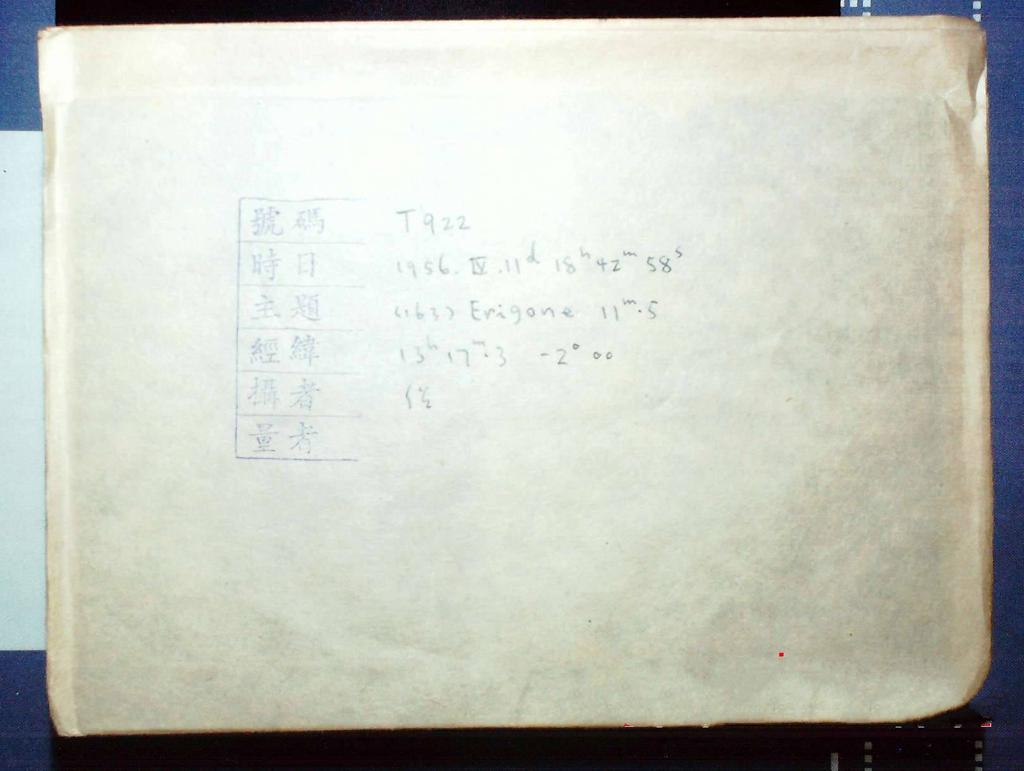 號碼 T922
時日 1956. IV. 11ᵈ 18ʰ 42ᵐ 58ˢ
主題 (163) Erigone 11ᵐ.5
經緯 13ʰ 17ᵐ.3 -2° 00
攝者
量者